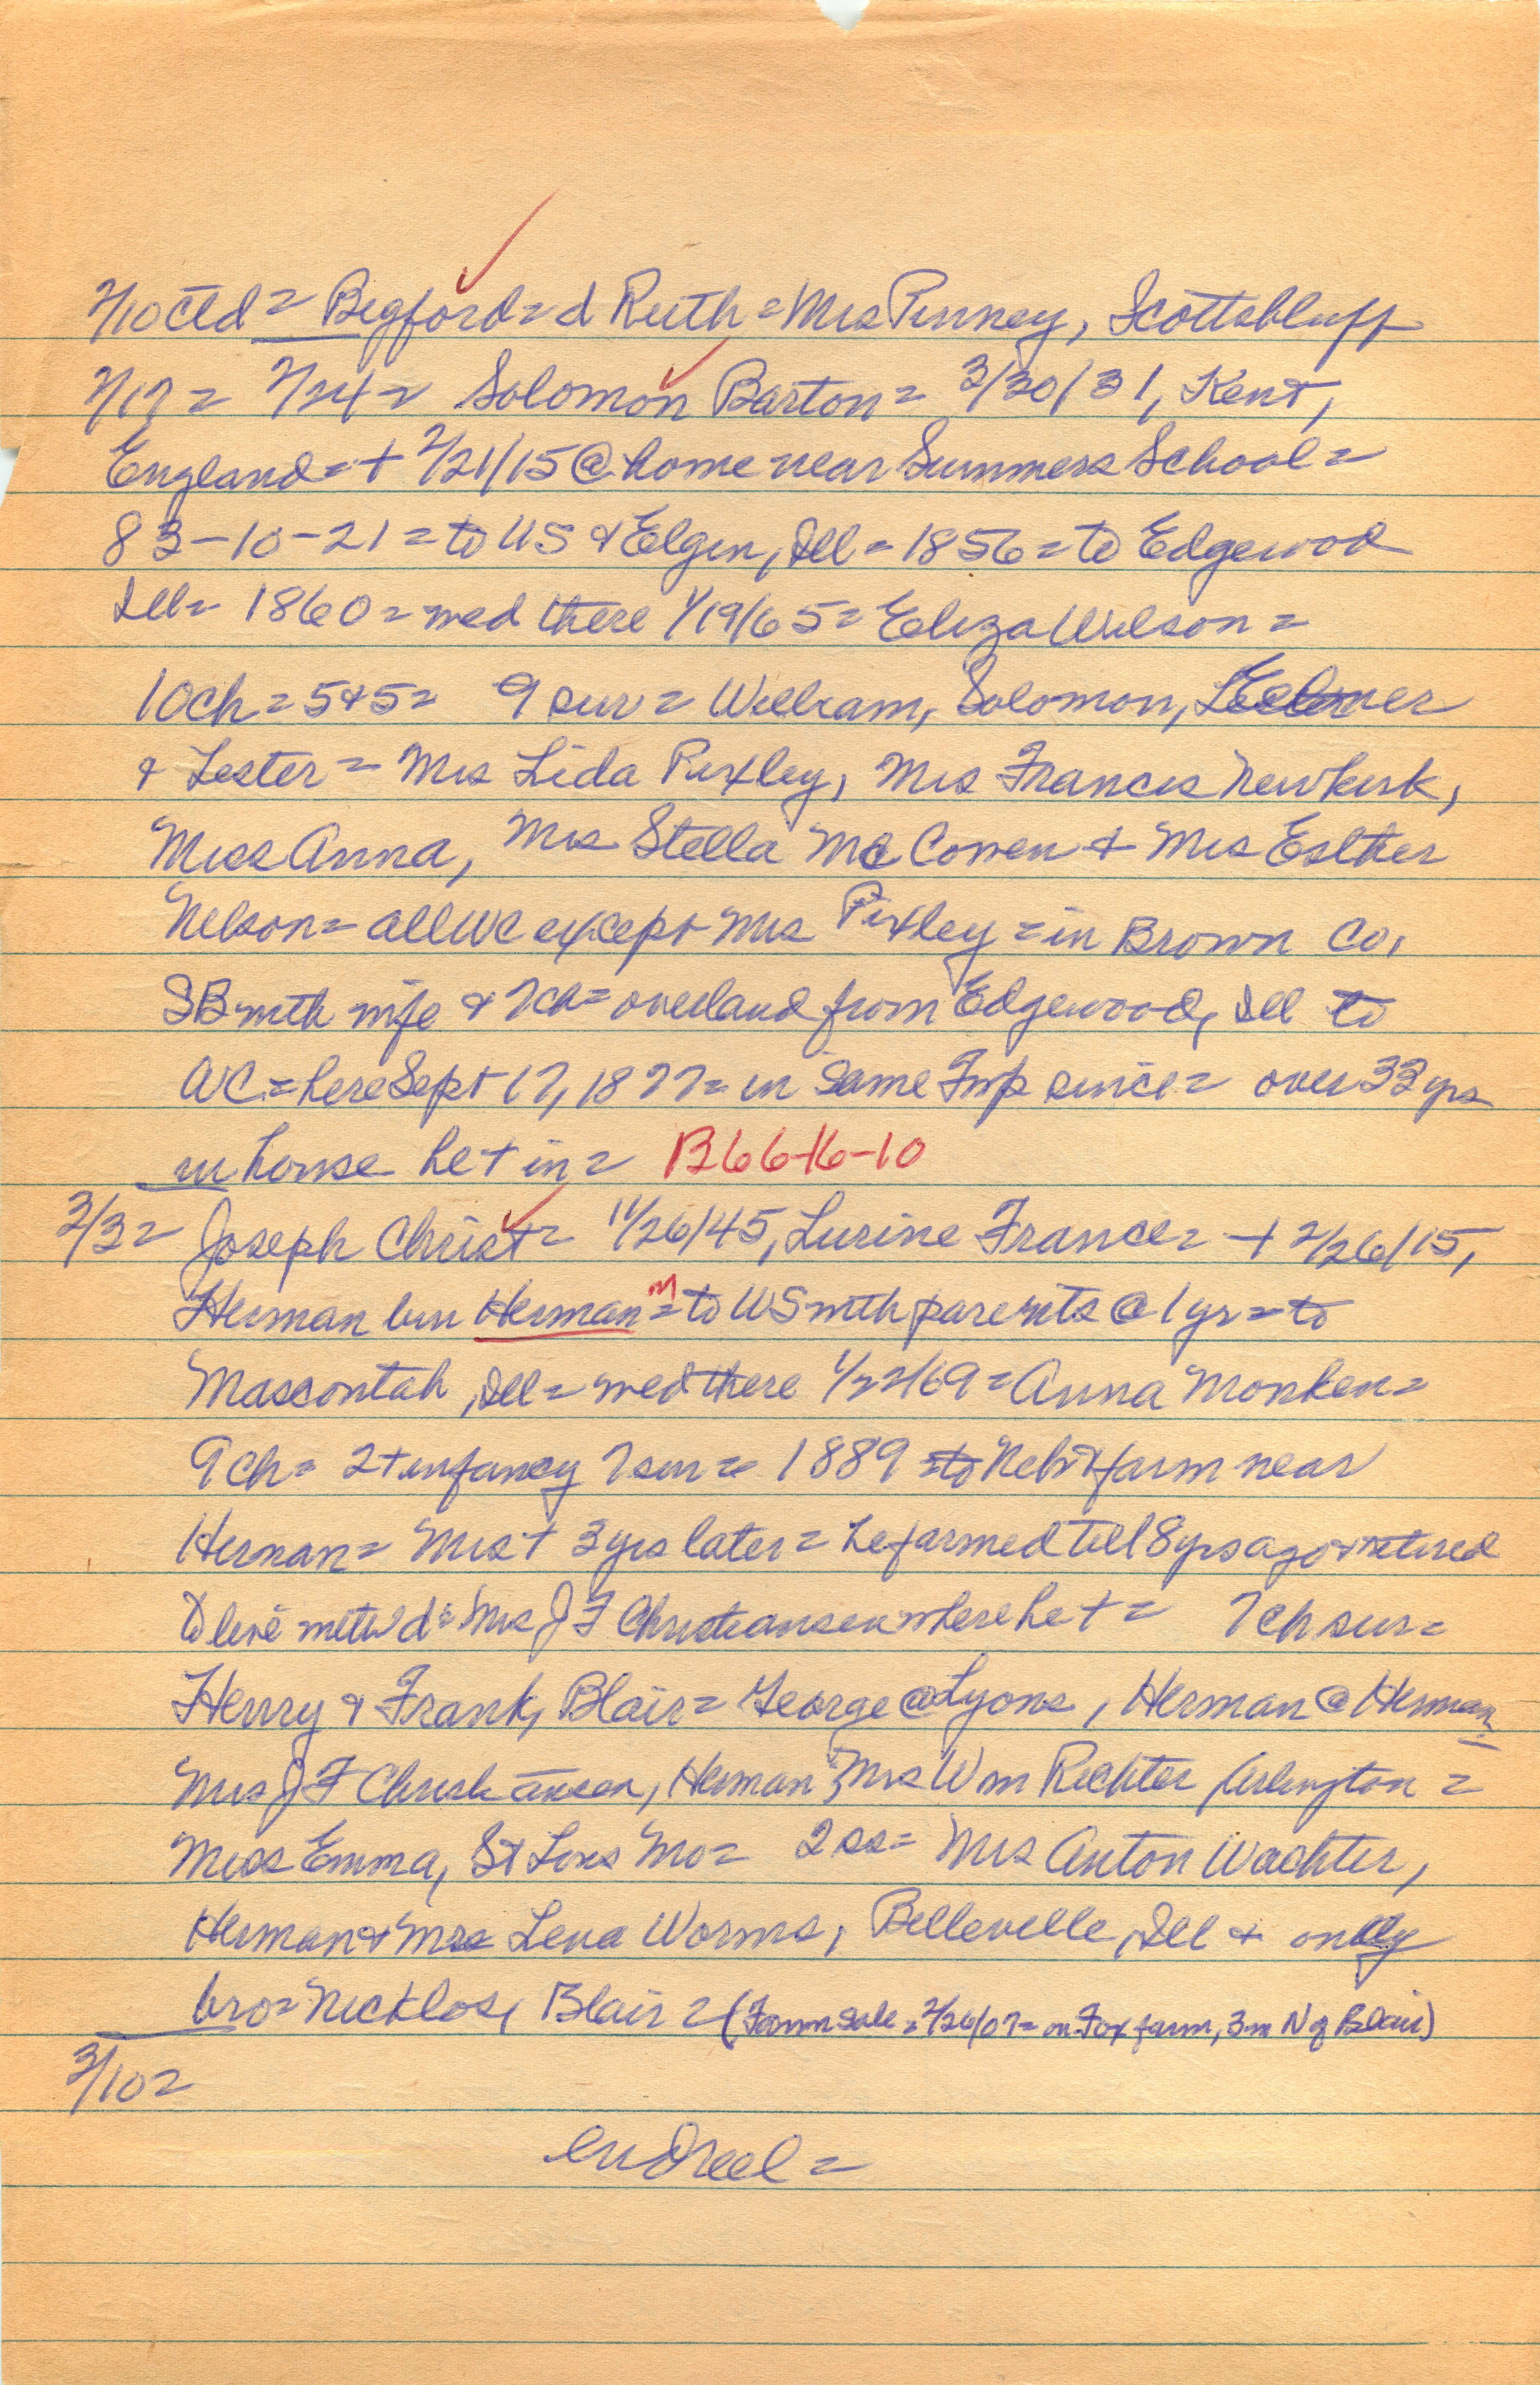 2/10 ctd = Bigford = d Ruth = Mrs Pinney, Scottsbluff
2/17 = 2/24 = Solomon Barton = 3/30/31, Kent,
England = + 2/21/15 @ home near Summers School =
83-10-21 = to US & Elgin, Ill = 1856 = to Edgewood
Ill = 1860 = med there 1/19/65 = Eliza Wilson =
10ch = 5&5 = 9 sur = William, Solomon, Elmer
& Lester = Mrs Lida Pixley, Mrs Francis Newkirk,
Miss Anna, Mrs Stella McCowen & Mrs Esther
Nelson = all WC except Mrs Pixley = in Brown Co.
SB with wife & 7ch = overland from Edgewood, Ill to
WC = here Sept 17, 1877 = in same Twp since = over 33 yrs
in house he + in = B66-16-10
3/3 = Joseph Christ = 11/26/45, Lurine France = + 2/26/15,
Herman bur Herman = m to US with parents @ 1 yr = to
Mascontah, Ill = med there 1/22/69 = Anna Monken =
9ch = 2 + infancy 7 sur = 1889 = to Neb & farm near
Herman = Mrs + 3 yrs later = he farmed till 8 yrs ago & retired
to live with d = Mrs J F Christiansen where he + = 7ch sur =
Henry & Frank, Blair = George @ Lyons, Herman @ Herman
Mrs J F Christiansen, Herman; Mrs Wm Richter Arlington =
Miss Emma, St Louis Mo = 2 ss = Mrs Anton Wachter,
Herman & Mrs Lena Worms, Belleville, Ill & only
bro = Nicklos, Blair = (Farm sale = 2/26/07 = on Fox farm, 3m N of Blair)
3/10 =
end reel =